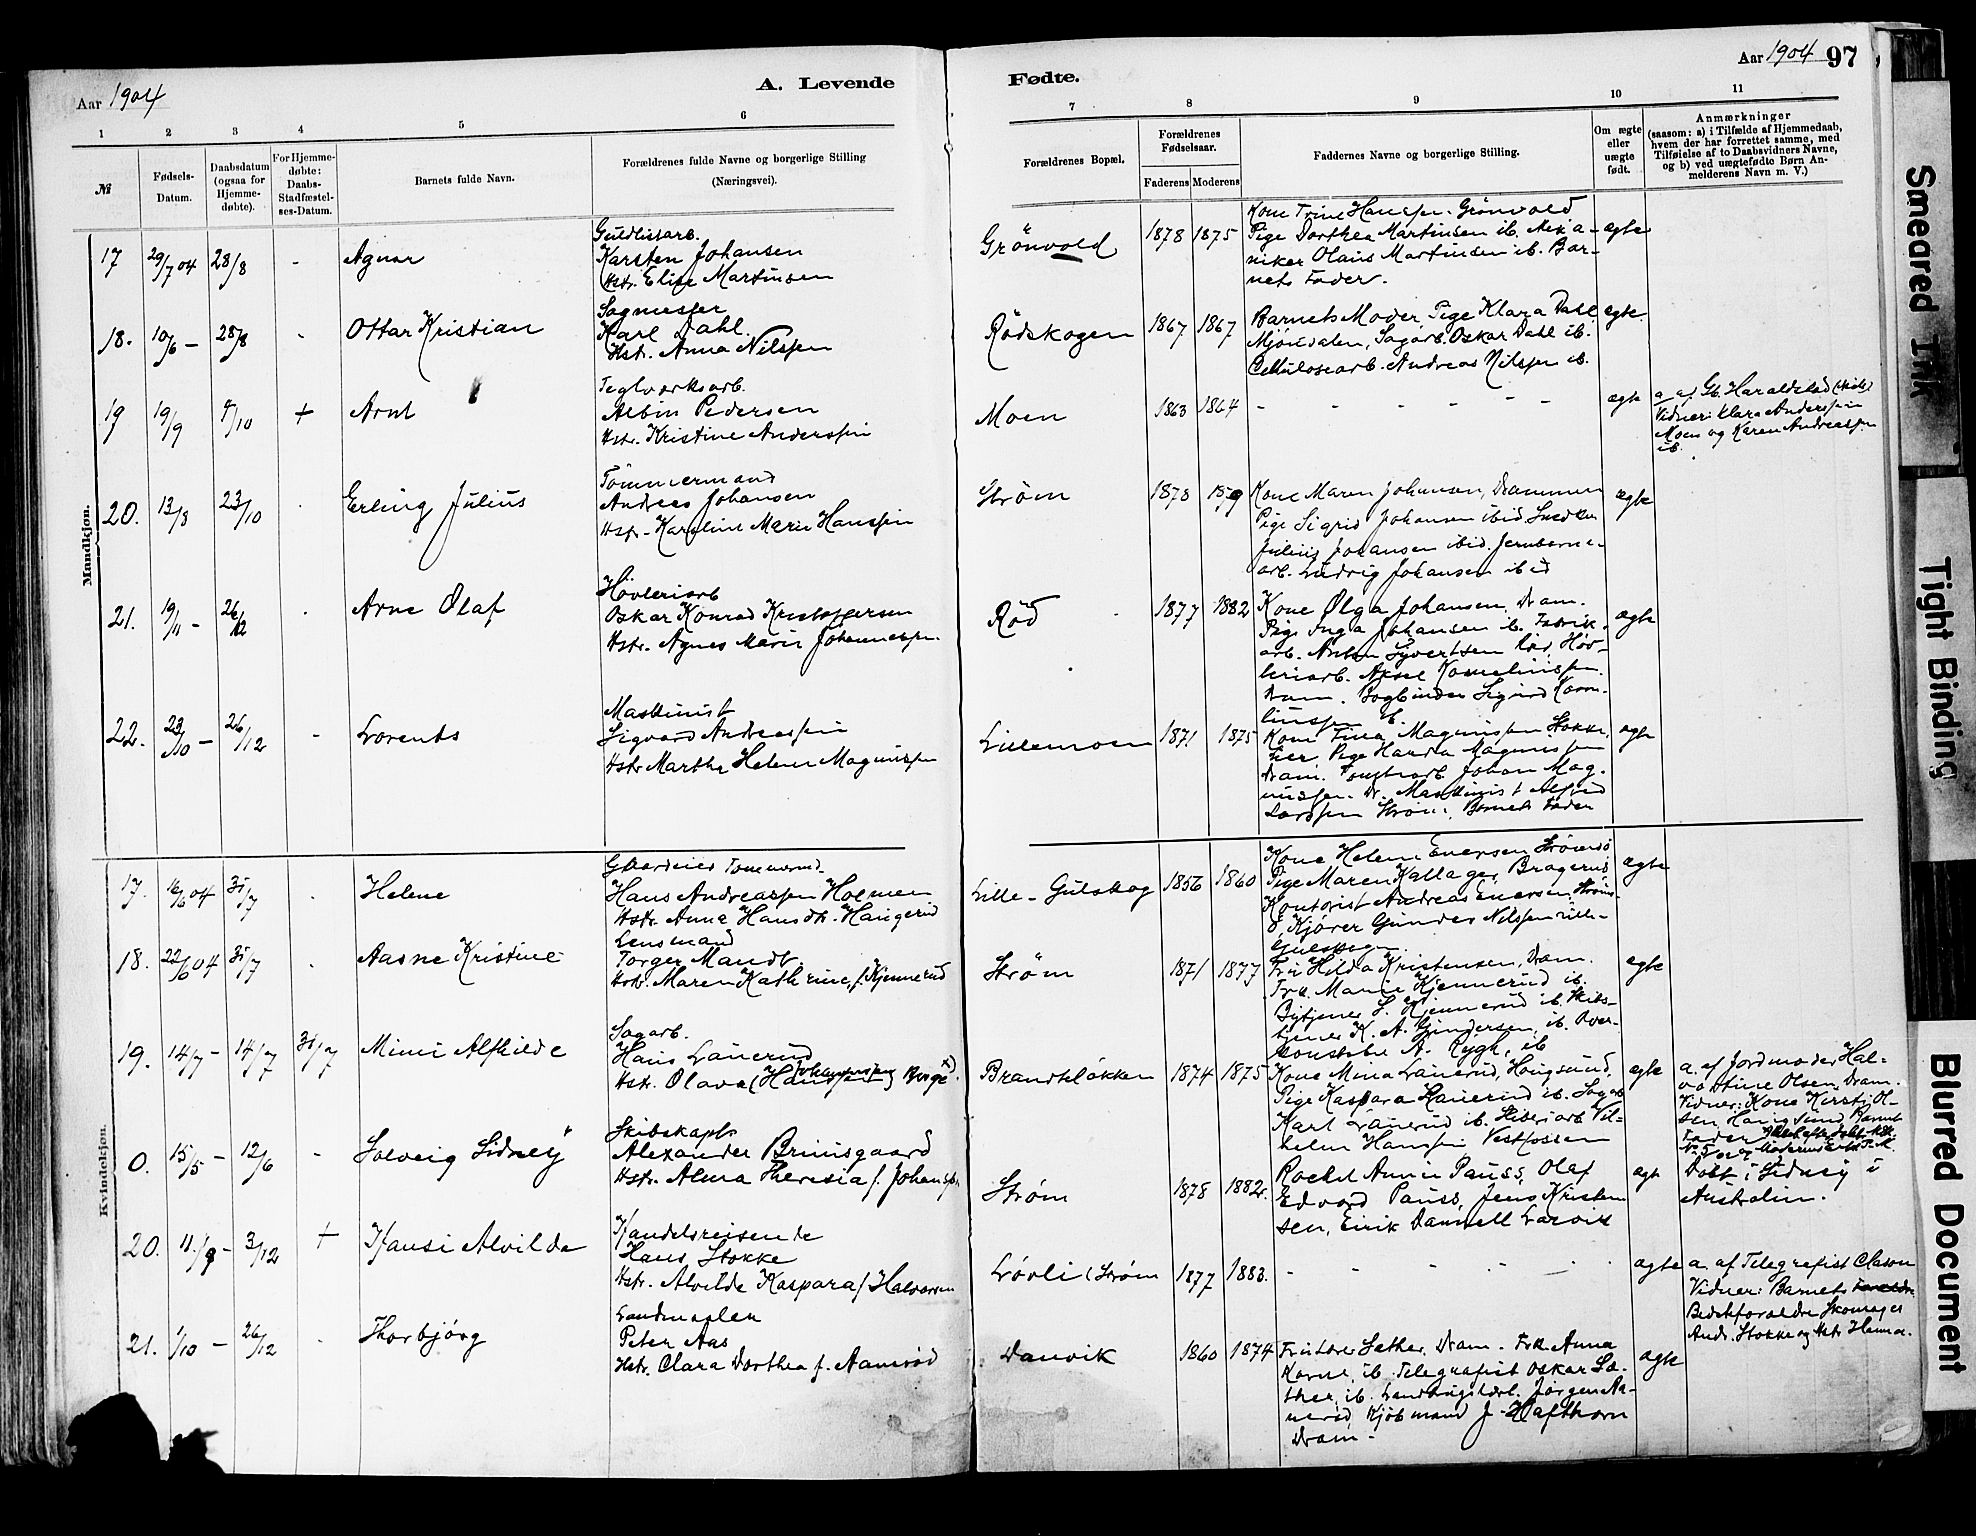 Aar 1904
A. Levende
Fødte.
Aar 1904 97
1 2 3 4 5 6 7 8 9 10 11
№
Fødsels-
Datum.
Daabsdatum
(ogsaa for
Hjemme-
døbte).
For Hjemme-
døbte:
Daabs-
Stadfæstel-
ses-Datum.
Barnets fulde Navn.
Forældrenes fulde Navne og borgerlige Stilling
(Næringsvei).
Forældrenes Bopæl.
Forældrenes
Fødselsaar.
Faderens Moderens
Faddernes Navne og borgerlige Stilling.
Om ægte
eller
uægte
født.
Anmærkninger
(saasom: a) i Tilfælde af Hjemmedaab,
hvem der har forrettet samme, med
Tilføielse af to Daabsvidners Navne,
og b) ved uægtefødte Børn An-
melderens Navn m. V.)
Mandkjøn.
17 29/7 04 28/8 - Agnar
Guldlistarb.
Karsten Johansen
Hstr. Elise Martinsen
Grönvold 1878 1875
Kone Trine Hansen Grönvold
Pige Dorthea Martinsen ib.
Olaus Martinsen ib. Bar-
nets Fader.
ægte
18. 10/6 - 28/8 - Ottar Kristian
Sagmester
Karl Dahl.
Hstr. Anna Nilssen
Rødskogen 1867 1867
Barnets Moder Pige Klara Dahl
Mjöndalen, Sagarb. Oskar Dahl ib.
Cellulosearb. Andreas Nilssen ib.
ægte
19 19/9 /10 + Arnt
Teglverksarb.
Albin Pedersen
Hstr. Kristine Anderssen
Moen 1863 1864 - - - - - -
ægte
a af Gb. Haraldstad (Skole)
Vidner: Klara Anderssen
Moen og Karen Andreassen
ib.
20. 13/8 23/10 - Erling Julius
Tømmermand
Andreas Johansen
Hstr. Karoline Marie Hanssen
Strøm 1878 1879
Kone Maren Johansen, Drammen
Pige Sigrid Johansen ibid Snedker
Julius Johansen ibid. Jernbane-
arb. Ludvig Johansen ibid
ægte
21. 19/11 - 26/12 - Arne Olaf
Høvleriarb
Oskar Konrad Kristoffersen
Hstr. Agnes Marie Johannessen
Rød 1877 1882
Kone Olga Johansen, Dram.
Pige Inga Johansen ib. Fabrik-
arb. Anton Syvertsen Rød, Høv-
leriarb. Aksel Kornelinssen
Dram. Bogbinder Sigurd Korne-
linssen ib.
ægte
22. 23/10 - 26/12 - Lorents
Maskinist
Sigvard Andreassen
Hstr Marthe Helene Magnussen
Lillemoen 1871 1875
Kone Tina Magnussen Stokke,
her Pige Harda Magnussen
Dram. Tomtearb Johan Mag-
nussen. Dr. Maskinist Alfred
Larssen Strøm, Barnets Fader
ægte
Kvindekjøn.
17. 16/6 04 31/7 - Helene
Gaardeier Tommerm.
Hans Andreassen Holmen
Hstr. Anna Hansdtr. Haugerud
Lille-Gulskog 1856 1860
Kone Helene Evensen Strømsö
Pige Maren Kallager, Bragernes
Kontorist Andreas Evensen Strøms-
ö, Kjører Gunder Nilssen Lille-
Gulskogen.
ægte
18. 22/6 04 31/7 - Aasne Kristine
Lensmand
Torger Mandt.
Hstr. Maren Kathrine, f. Kjennerud
Strøm 1871 1877
Fru Hilda Kristensen, Dram.
Frk. Marie Kjennerud ib.
Bytjener S. Kjennerud ib. Skibs-
tjener K. A. Gundersen, ib. Over-
konstabel A. Rygh, ib
ægte
19. 14/7 - 14/7 31/7 Mimi Alfhilde
Sagarb.
Hans Lanerud
Hstr. Olava (Hanssen) Johannessen Berge x).
Brandtløkken 1874 1875
Kone Mina Lanerud, Hougsund,
Pige Kaspara Lanerud ib. Sagarb
Karl Lanerud ib. Sliberiarb Vil-
helm Hanssen Vestfossen
ægte
a. af Jordmoder Hal-
vadtine Olsen, Dram.
Vidner: Kone Kirsti Ol-
sen, Hougsund, Barnets
Fader
0. 15/5 - 12/6 - Solveig Sidney
Skibskapt.
Alexander Brinisgaard
Hstr. Alma Theresia f. Johansen
Strøm 1878 1882.
Rachel Annie Pauss, Olaf
Edvard Pauss, Jens Kristen-
sen, Eirik Dannell Larvik
ægte
Døbt i Sidney i
Australien.
20. 11/9 - 3/12 + Hansi Alvilde
Handelsreisende
Hans Stokke
Hstr. Alvilde Kaspara f. Halvorsen
Løvli (Strøm 1877 1883. - - - - - -
ægte
a. af Telegrafist Clason
Vidner: Barnets Forældre
Bedsteforældre Skomager
Andr. Stokke og Hstr Helene.
21. 1/10 - 26/12 - Thorbjörg
Landmaaler
Peter Aas
Hstr. Clara Dorthea f. Aamsrød
Danvik 1860 1874
Fru Love Sæther, Dram. Frk. Anna
Korne, ib. Telegrafist Oskar Sæ-
ther, ib. Landbrugskand. Jørgen Aa-
nerød, Kjøbmand J. Hafthorn
Dram.
ægte
Smeared Ink
Tight Binding
Blurred Document